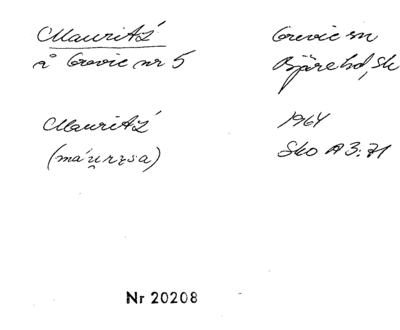 Mauritz
å Grevie nr 5
Grevie sn
Bjäre hd, Sk
Mauritz
(máu̯rɪsa)
1964
Sko A 3:71
Nr 20208